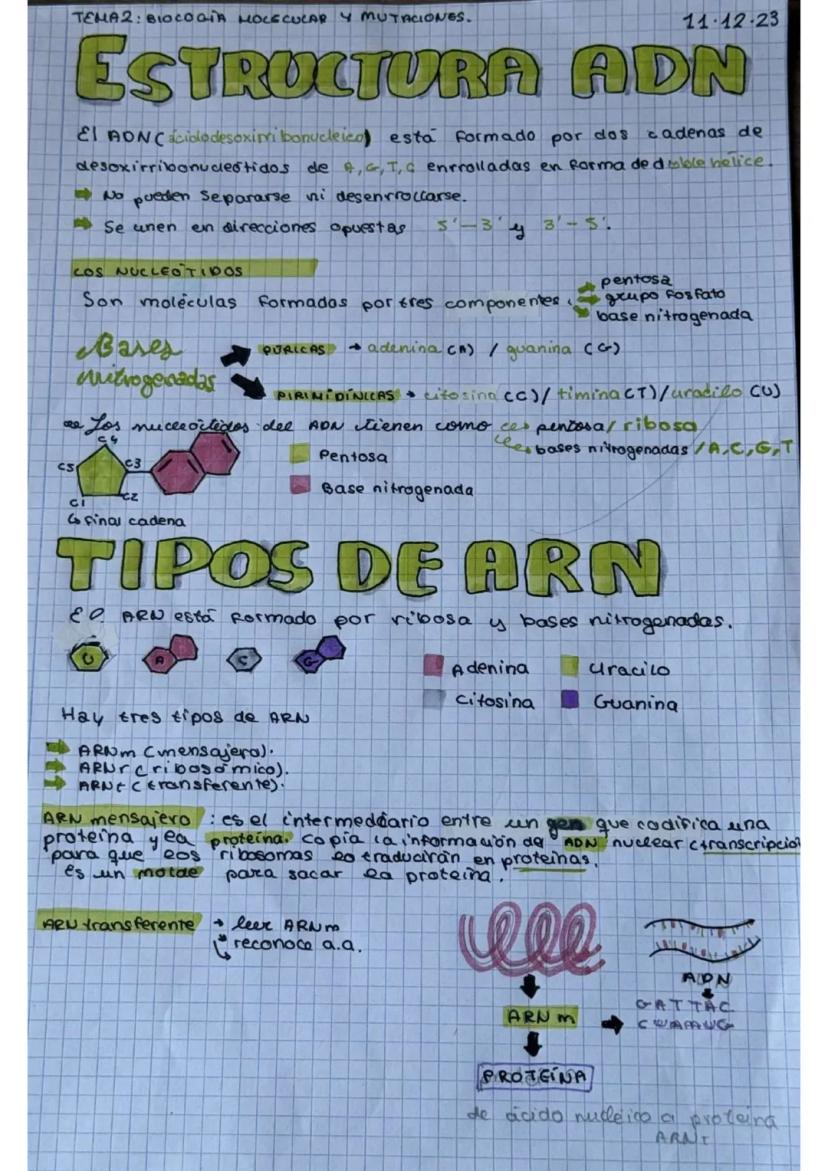 TEMA2: BIOLOGÍA MOLECULAR Y MUTACIONES.
11-12-23
ESTRUCTURA ADN
El ADN (ácido desoxirribonucleico) está formado por dos cadenas de
desoxirribonucleótidos de A, G, T, C enrrolladas en forma de doble hélice.
No pueden separarse ni desenrrollarse.
Se unen en direcciones opuestas 5'-3' y 3'-5'.
LOS NUCLEÓTIDOS
Son moléculas formadas por tres componentes
pentosa
grupo fosfato
base nitrogenada
Bases
nitrogenadas
PÚRICAS → adenina (A) / guanina (G)
PIRIMIDÍNICAS → citosina (C) / timina (T) / uracilo (U)
Los nucleótidos del ADN tienen como pentosa / ribosa
bases nitrogenadas / A, C, G, T
C4
C5
C3
C1
C2
Pentosa
Base nitrogenada
final cadena
TIPOS DE ARN
El ARN está formado por ribosa y bases nitrogenadas.
U
A
C
G
Adenina
Uracilo
Citosina
Guanina
Hay tres tipos de ARN
ARNm (mensajero).
ARNr (ribosómico).
ARNt (transferente).
ARN mensajero: es el intermediario entre un gen que codifica una
proteína y la proteína. Copia la información del ADN nuclear (transcripción
para que los ribosomas la traducirán en proteínas.
es un molde para sacar la proteína.
ARN transferente → leer ARNm
reconoce a.a.
ADN
GATTAC
CUAAUG
ARNm
PROTEÍNA
de ácido nucleico a proteína